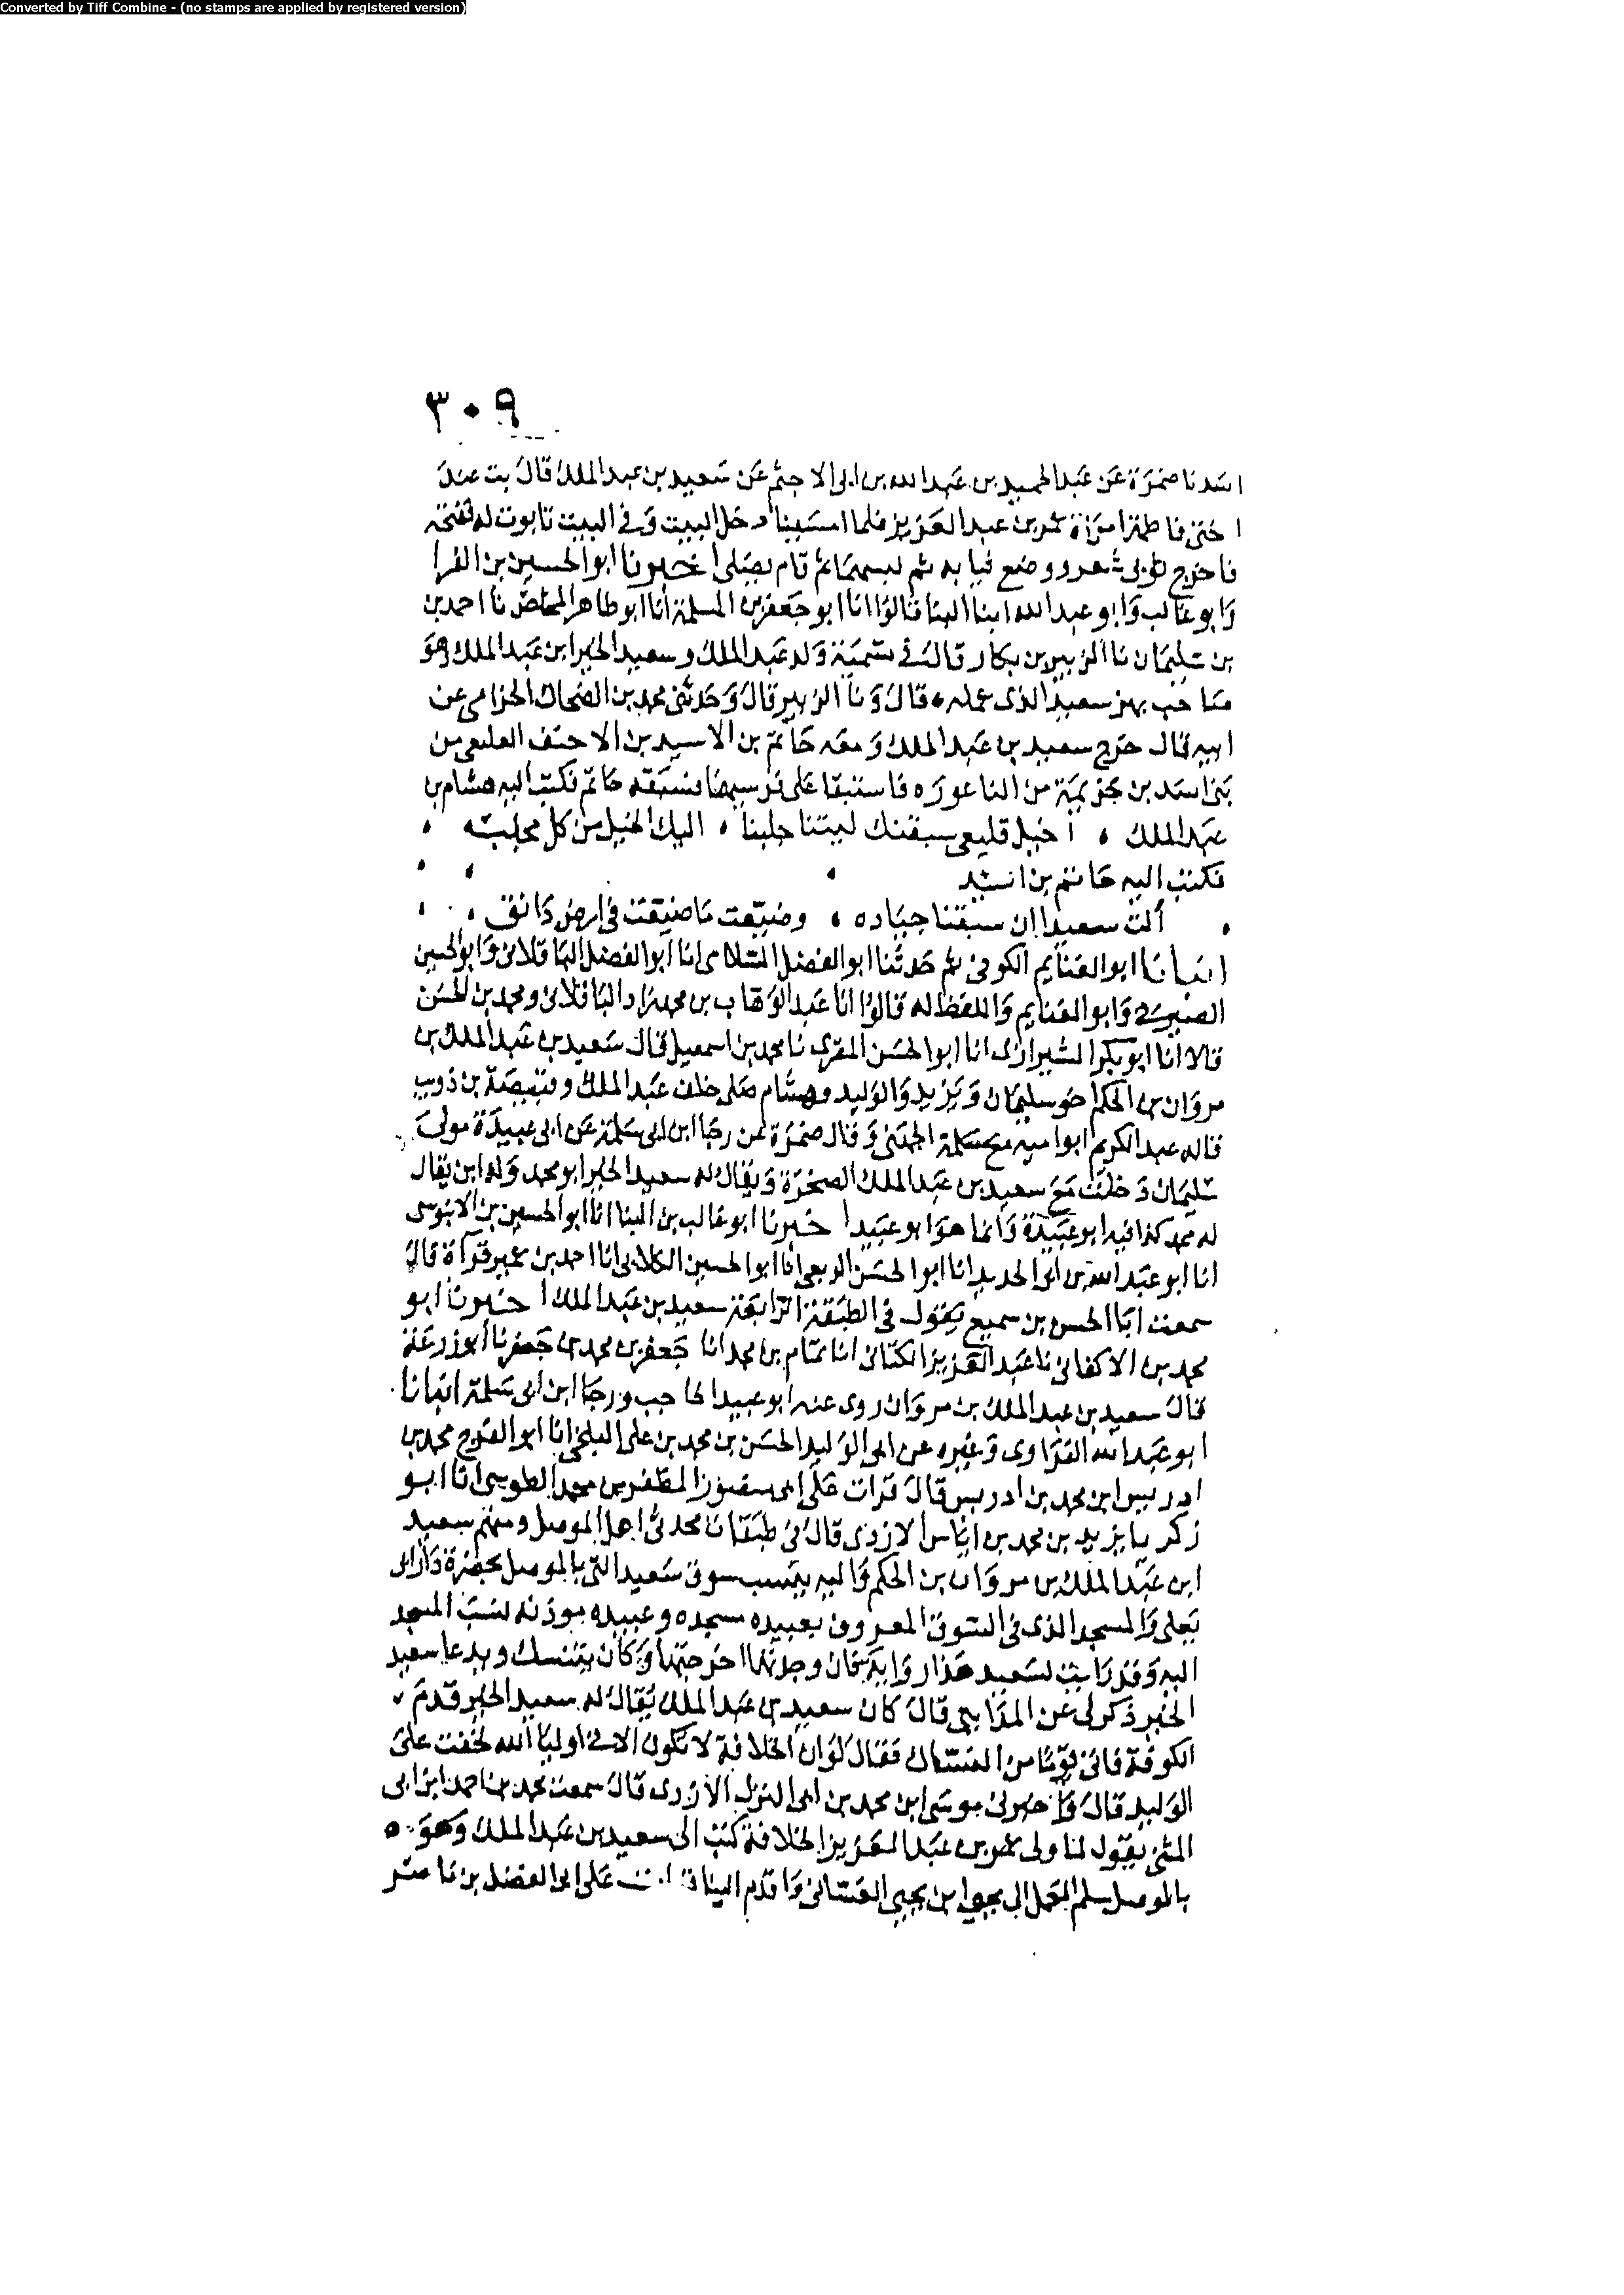 Converted by Tiff Combine - (no stamps are applied by registered version)
٣٠٩
اسد نا ضمرة عن عبد الحميد بن عبد الله بن ابى الاجثم عن سعيد بن عبد الملك قال بت عند
اختى فاطمة امراة عمر بن عبد العزيز فلما امسينا دخل البيت وفى البيت تابوت له ففتحه
فاخرج ثوبى شعر ووضع ثيابه ثم لبسهما ثم قام يصلى اخبرنا ابو الحسين بن الفرا
وابو غالب وابو عبد الله ابنا البنا قالوا انا ابو جعفر بن المسلمة انا ابو طاهر المخلص نا احمد بن
بن سليمان نا الزبير بن بكار قال فى تسمية ولد عبد الملك وسعيد الخير ابن عبد الملك وهو
صاحب نهر سعيد الذى عمله قال ونا الزبير قال وحدثنى محمد بن الضحاك الحزامى عن
ابيه قال خرج سعيد بن عبد الملك ومعه حاتم بن الاسيد بن الاحنف القليعى من
بنى اسد بن خزيمة من الناعوره فاستبقا على فرسيهما فسبقه حاتم فكتب اليه هشام بن
عبد الملك ، اخيل قليعى سبقنك ليتنا جلبنا ، اليك الخيل من كل مجلبه
فكتب اليه حاتم بن اسيد
ألت سعيدا ان سبقنا جياده ، وضيعت ما ضيعت فى ارض دانق
انبانا ابو الغنايم الكوفى ثم حدثنا ابو الفضل السلامى انا ابو الفضل الباقلانى وابو الحسين
الصيرفى وابو الغنايم واللفظ له قالوا انا عبد الوهاب بن محمد زاد الباقلانى ومحمد بن الحسن
قالا انا ابو بكر الشيرازى انا ابو الحسن المقرى نا محمد بن اسمعيل قال سعيد بن عبد الملك بن
مروان بن الحكم اخو سليمان ويزيد والوليد وهشام صلى خلف عبد الملك وقبيصة بن ذويب
قاله عبد الكريم ابو اميه مسلمة الجهنى وقال ضمرة عن رجا ابن ابى سلمة عن ابى عبيدة مولى
سليمان دخلت مع سعيد بن عبد الملك الصخرة ويقال له سعيد الخير ابو محمد وله ابن يقال
له محمد كذا فيه ابو عبيدة وانما هو ابو عبيد اخبرنا ابو غالب بن البنا انا ابو الحسين بن الابنوسى
انا ابو عبد الله بن ابى الحديد انا ابو الحسن الربعى انا ابو الحسين الكلابى انا احمد بن عمير قراة قال
سمعت ابا الحسن بن سميع يقول فى الطبقة الرابعة سعيد بن عبد الملك اخبرنا ابو
محمد بن الاكفانى نا عبد العزيز الكتانى انا تمام بن محمد انا جعفر بن محمد بن جعفر نا ابو زرعة
قال سعيد بن عبد الملك بن مروان روى عنه ابو عبيد الحاجب ورجا ابن ابى سلمة انبانا
ابو عبد الله الفراوى وغيره عن ابى الوليد الحسن بن محمد بن على البلخى انا ابو الفرج محمد بن
ادريس ابن محمد بن ادريس قال قرات على ابى منصور المظفر بن محمد الطوسى انا ابو
زكريا يزيد بن محمد بن اياس الازدى قال فى طبقات محدثى اهل الموصل ومنهم سعيد
ابن عبد الملك بن مروان بن الحكم واليه ينسب سوق سعيد التى بالموصل بحضرة دار ابى
يعلى والمسجد الذى فى السوق المعروف بعبيده مسجده وعبيده موذنه نسب المسجد
اليه وقد رايت لسعيد هذا رواية وجدتها اخرجتها وكان يتنسك ويدعا سعيد
الخير ذكر لى عن المداينى قال كان سعيد بن عبد الملك يقال له سعيد الخير قدم
الكوفة فاتى قوما من النساك فقال لو ان الخلافة لا تكون الا فى اوليا الله لخفت على
الوليد قال واخبرنى موسى ابن محمد بن ابى الازدى قال سمعت محمد بن احمد ابن ابى
المثنى يقول لما ولى عمر بن عبد العزيز الخلافة كتب الى سعيد بن عبد الملك وهو
بالموصل سلم العمل الى يحيى ابن يحيى الغسانى واقدم الينا على ابى الفضل بن ناصر